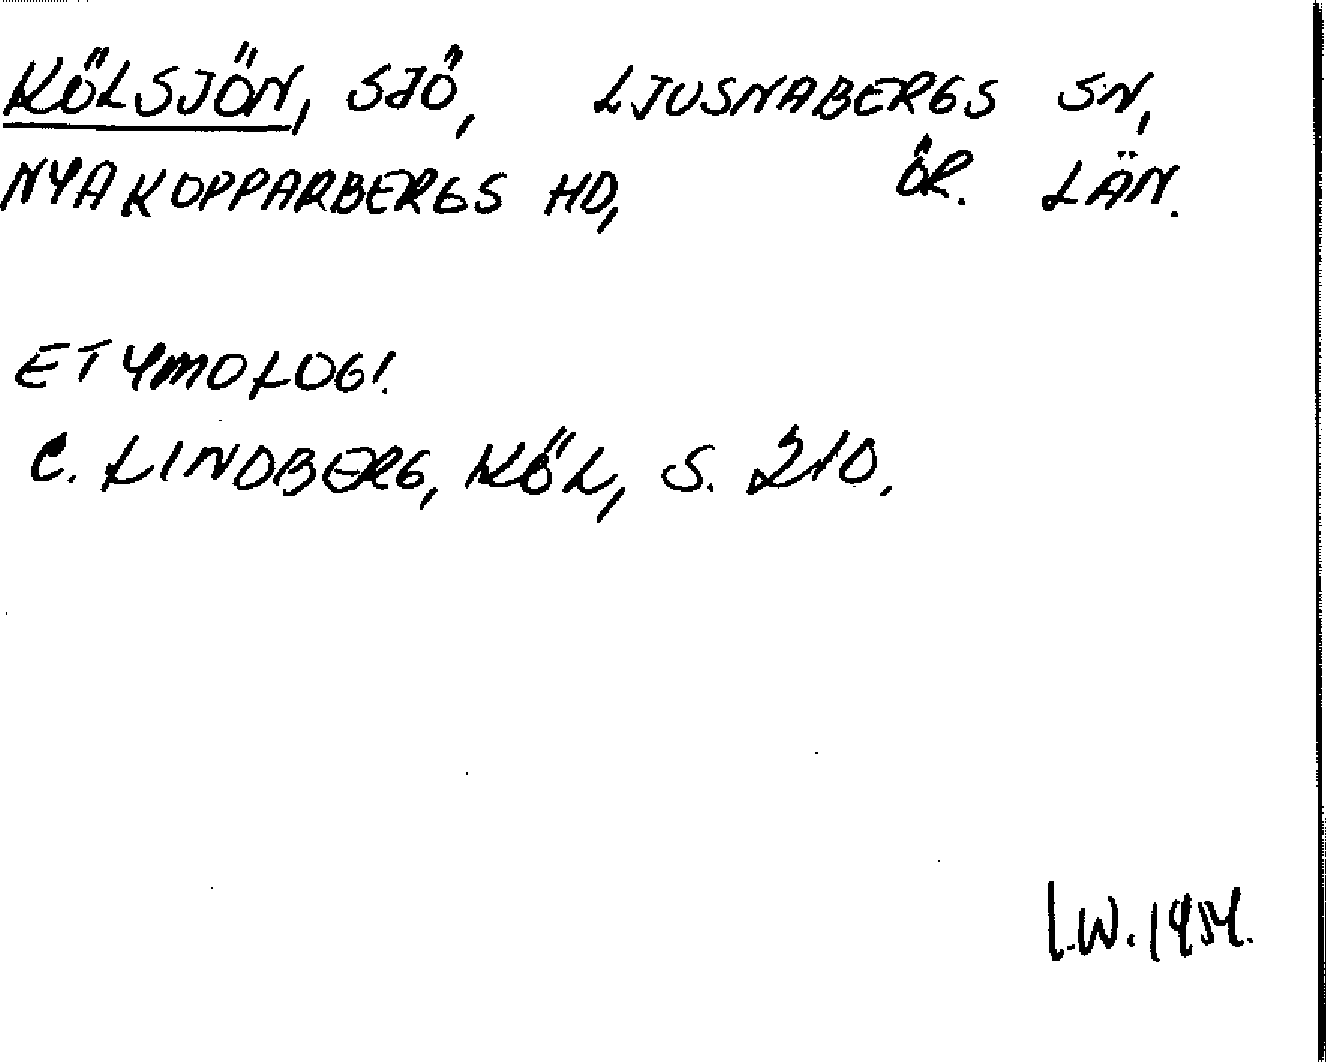 KÖLSJÖN, SJÖ, LJUSNABERGS SN,
NYA KOPPARBERGS HD, ÖR. LÄN.
ETYMOLOGI.
C. LINDBERG, KÖL, S. 210.